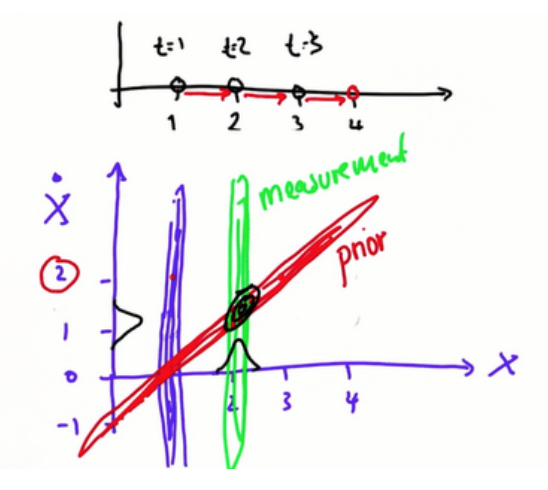 t=1 t=2 t=3
1 2 3 4
measurement
Ẋ
prior
2
1
0
2 3 4 X
-1